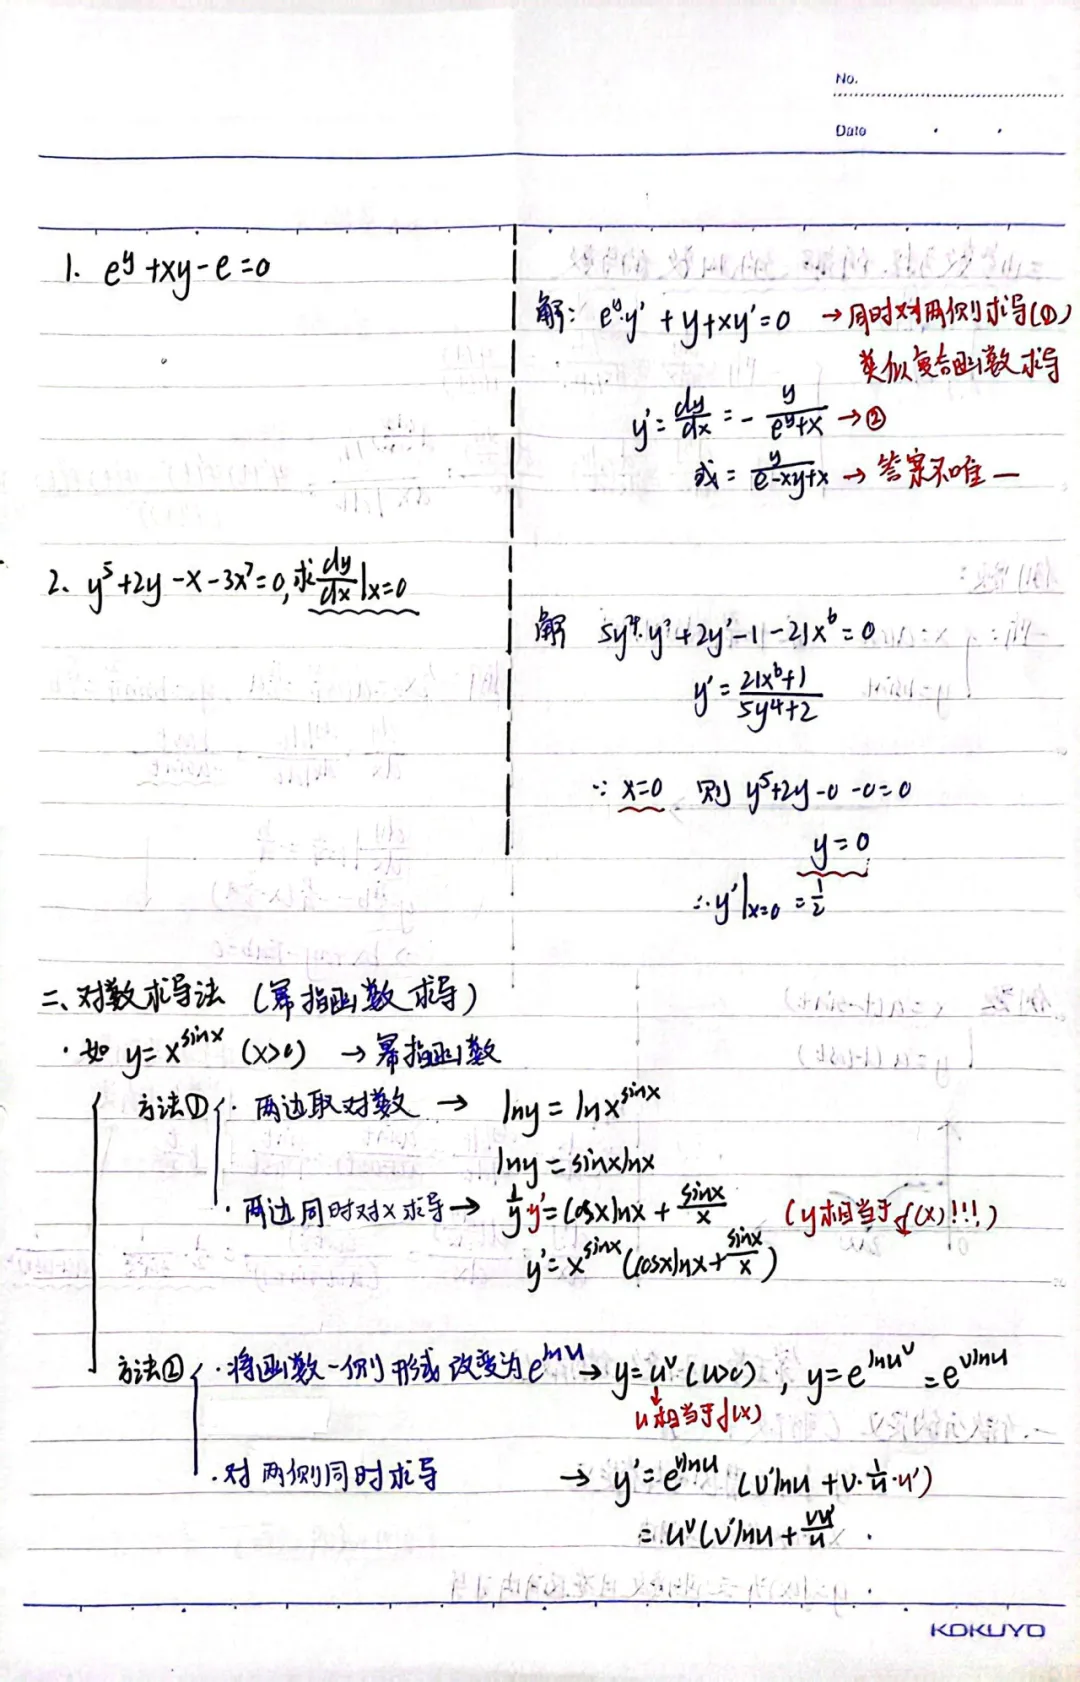 No.
Date
1. e^y+xy-e=0
解: e^y·y'+y+xy'=0 →同时对两侧求导(①)
类似复合函数求导
y'=dy/dx=-y/(e^y+x) →②
或=y/(e-xy+x) → 答案不唯一
2、y^5+2y-x-3x^7=0,求dy/dx|x=0
解 5y^4·y'+2y'-1-21x^6=0
y'=(21x^6+1)/(5y^4+2)
∵x=0 则 y^5+2y-0-0=0
y=0
∴y'|x=0=1/2
二、对数求导法 (幂指函数求导)
·如 y=x^sinx (x>0) →幂指函数
方法① ·两边取对数 → lny=lnx^sinx
lny=sinxlnx
·两边同时对x求导→ 1/y y'=cosxlnx+sinx/x (y相当于f(x)!!!)
y'=x^sinx(cosxlnx+sinx/x)
方法② ·将函数一侧形式改变为e^lnu→ y=u^v(u>0), y=e^lnu^v=e^vlnu
u相当于f(x)
·对两侧同时求导 → y'=e^vlnu(v'lnu+v·1/u·u')
=u^v(v'lnu+vu'/u)
KOKUYO